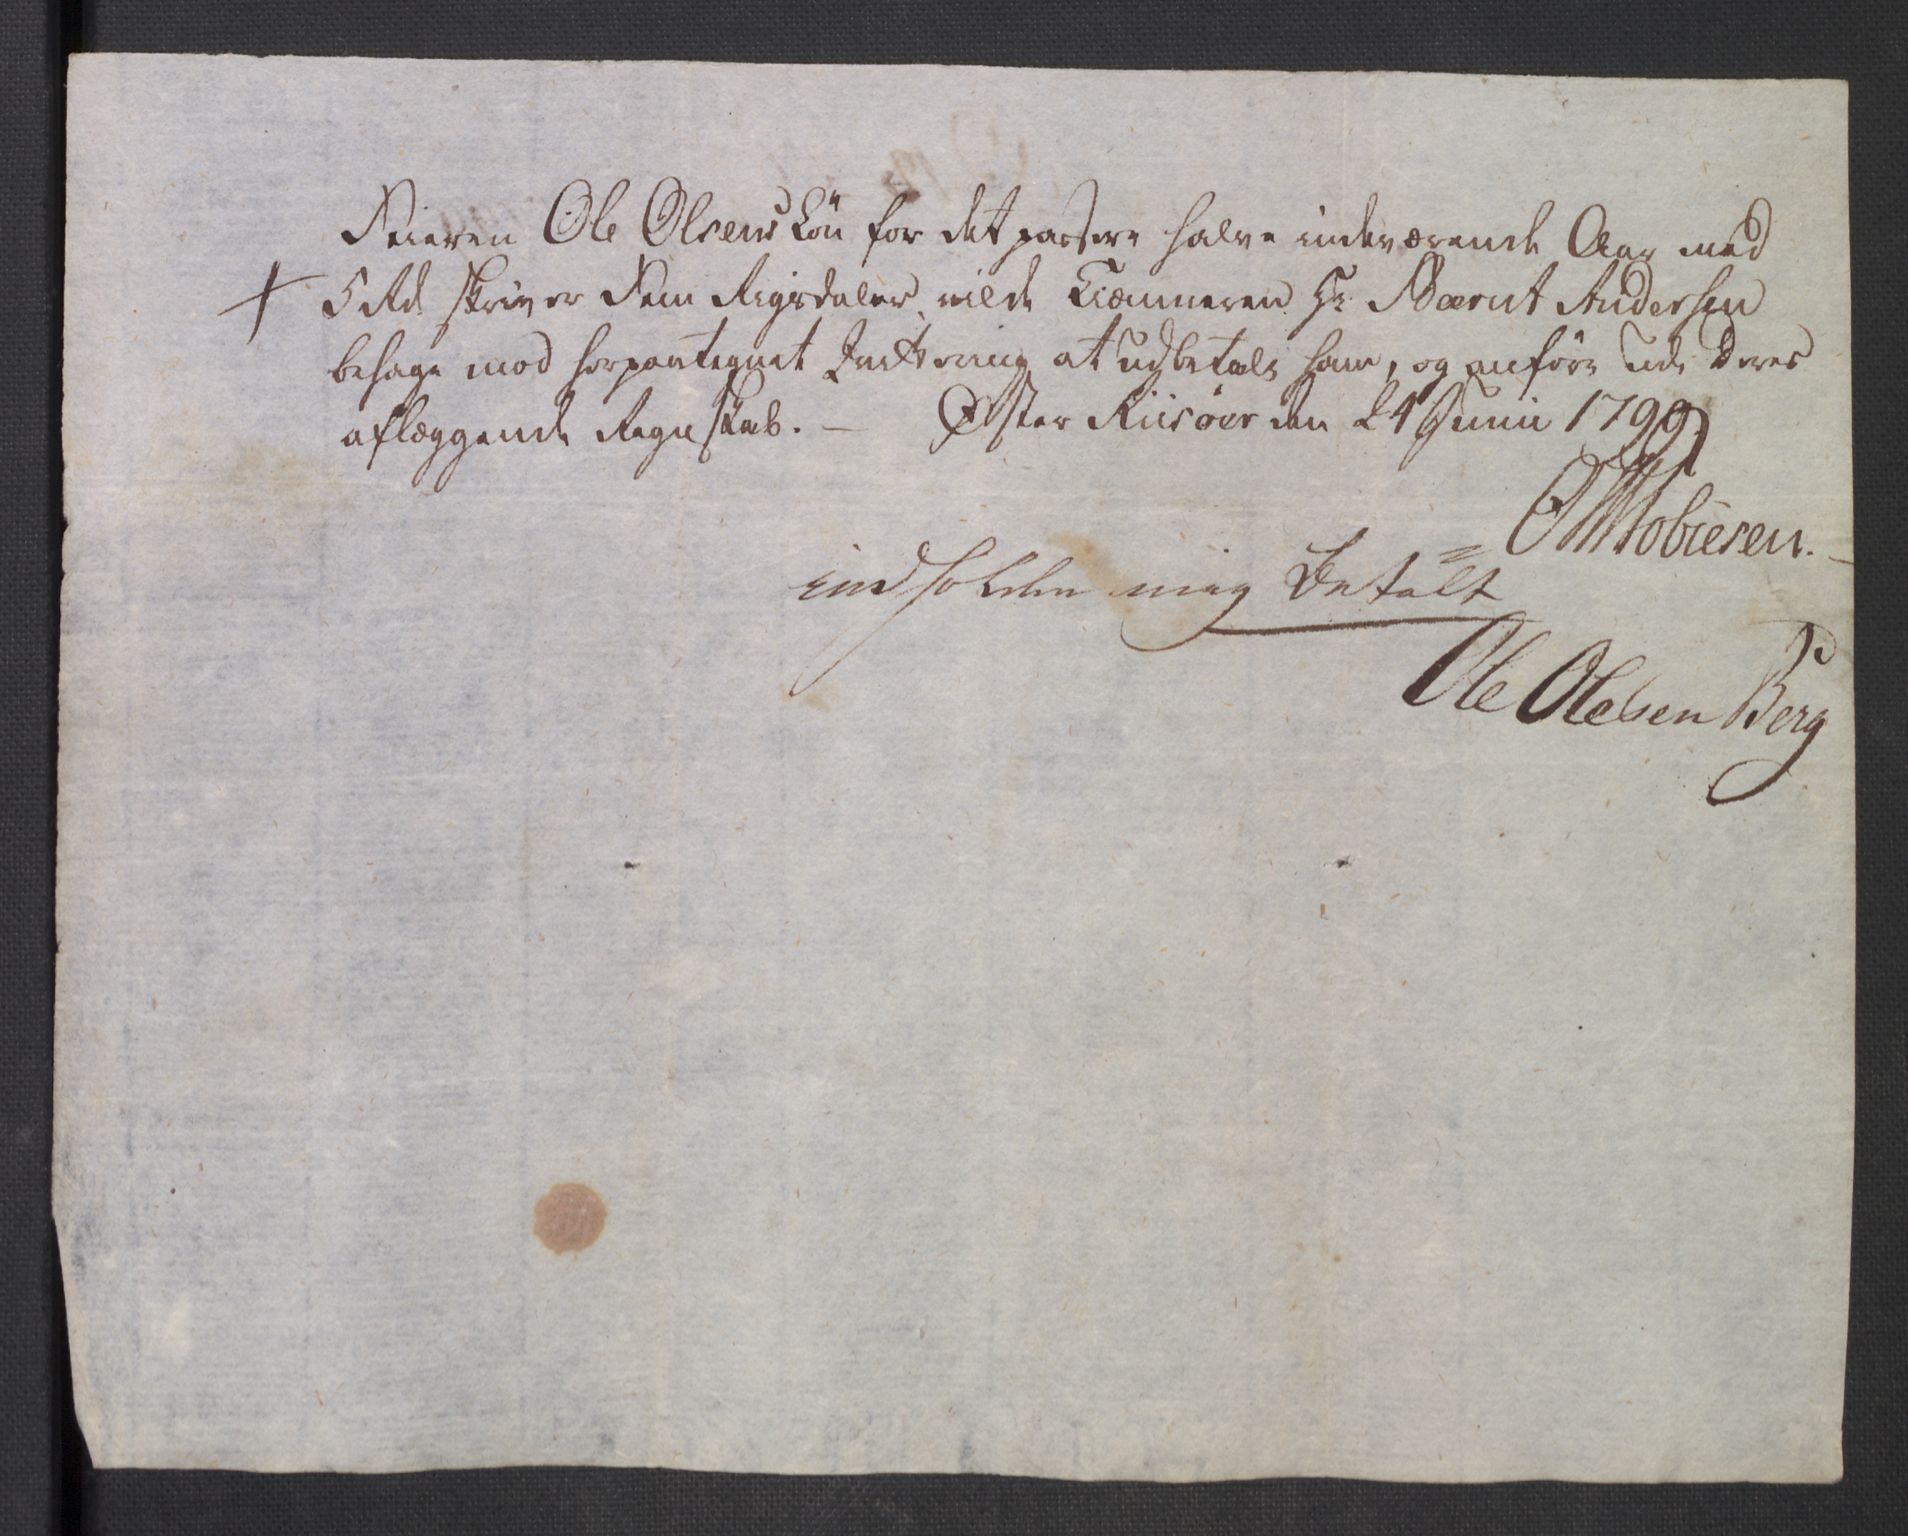 Feieren Ole Olsens Løn for det passere halve indeværende Aar med
5 Rd skriver Fem Rigsdaler, vilde Kiæmneren Hr Bærnt Andersen
behage mod herpaategnet Qvittering at udbetale ham, og anføre udi Deres
aflæggende Regnskab. — Øster Riisøer den 24 Junii 1799
Tobiesen.
indholden mig Betalt
Ole Olelsen Berg